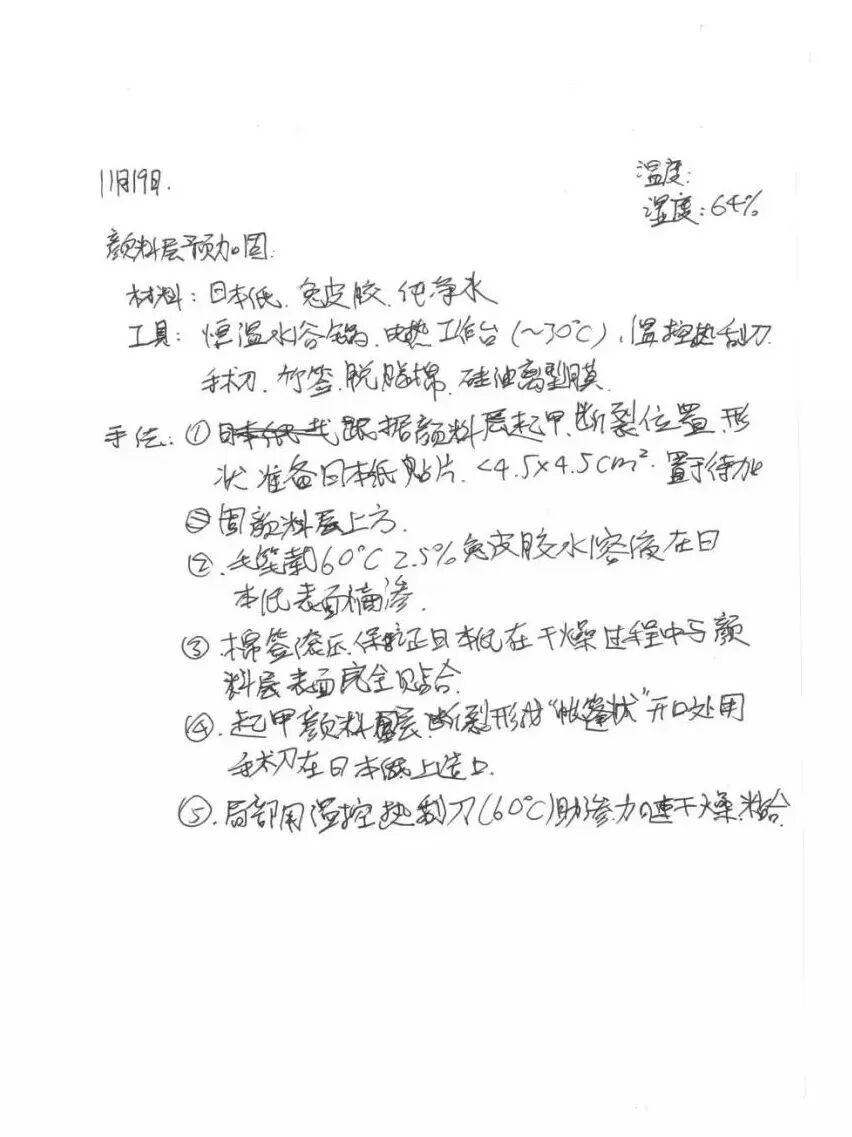 11月19日.
温度:
湿度:64%
颜料层预加固:
材料:日本纸、兔皮胶、纯净水
工具:恒温水浴锅、电热工作台(~30℃)、温控热刮刀
手术刀、竹签、脱脂棉、硅油离型膜
手法:①日本纸 跟据颜料层起甲、断裂位置、形
状准备日本纸贴片、<4.5×4.5cm²、置于待加
固颜料层上方.
②.毛笔蘸60℃ 2.5%兔皮胶水溶液在日
本纸表面 渗.
③ 棉签滚压、保证日本纸在干燥过程中与颜
料层表面完全贴合.
④.起甲颜料层断裂形成“帐篷状”开口处用
手术刀在日本纸上造口.
⑤.局部用温控热刮刀(60℃)助渗加速干燥、粘合.